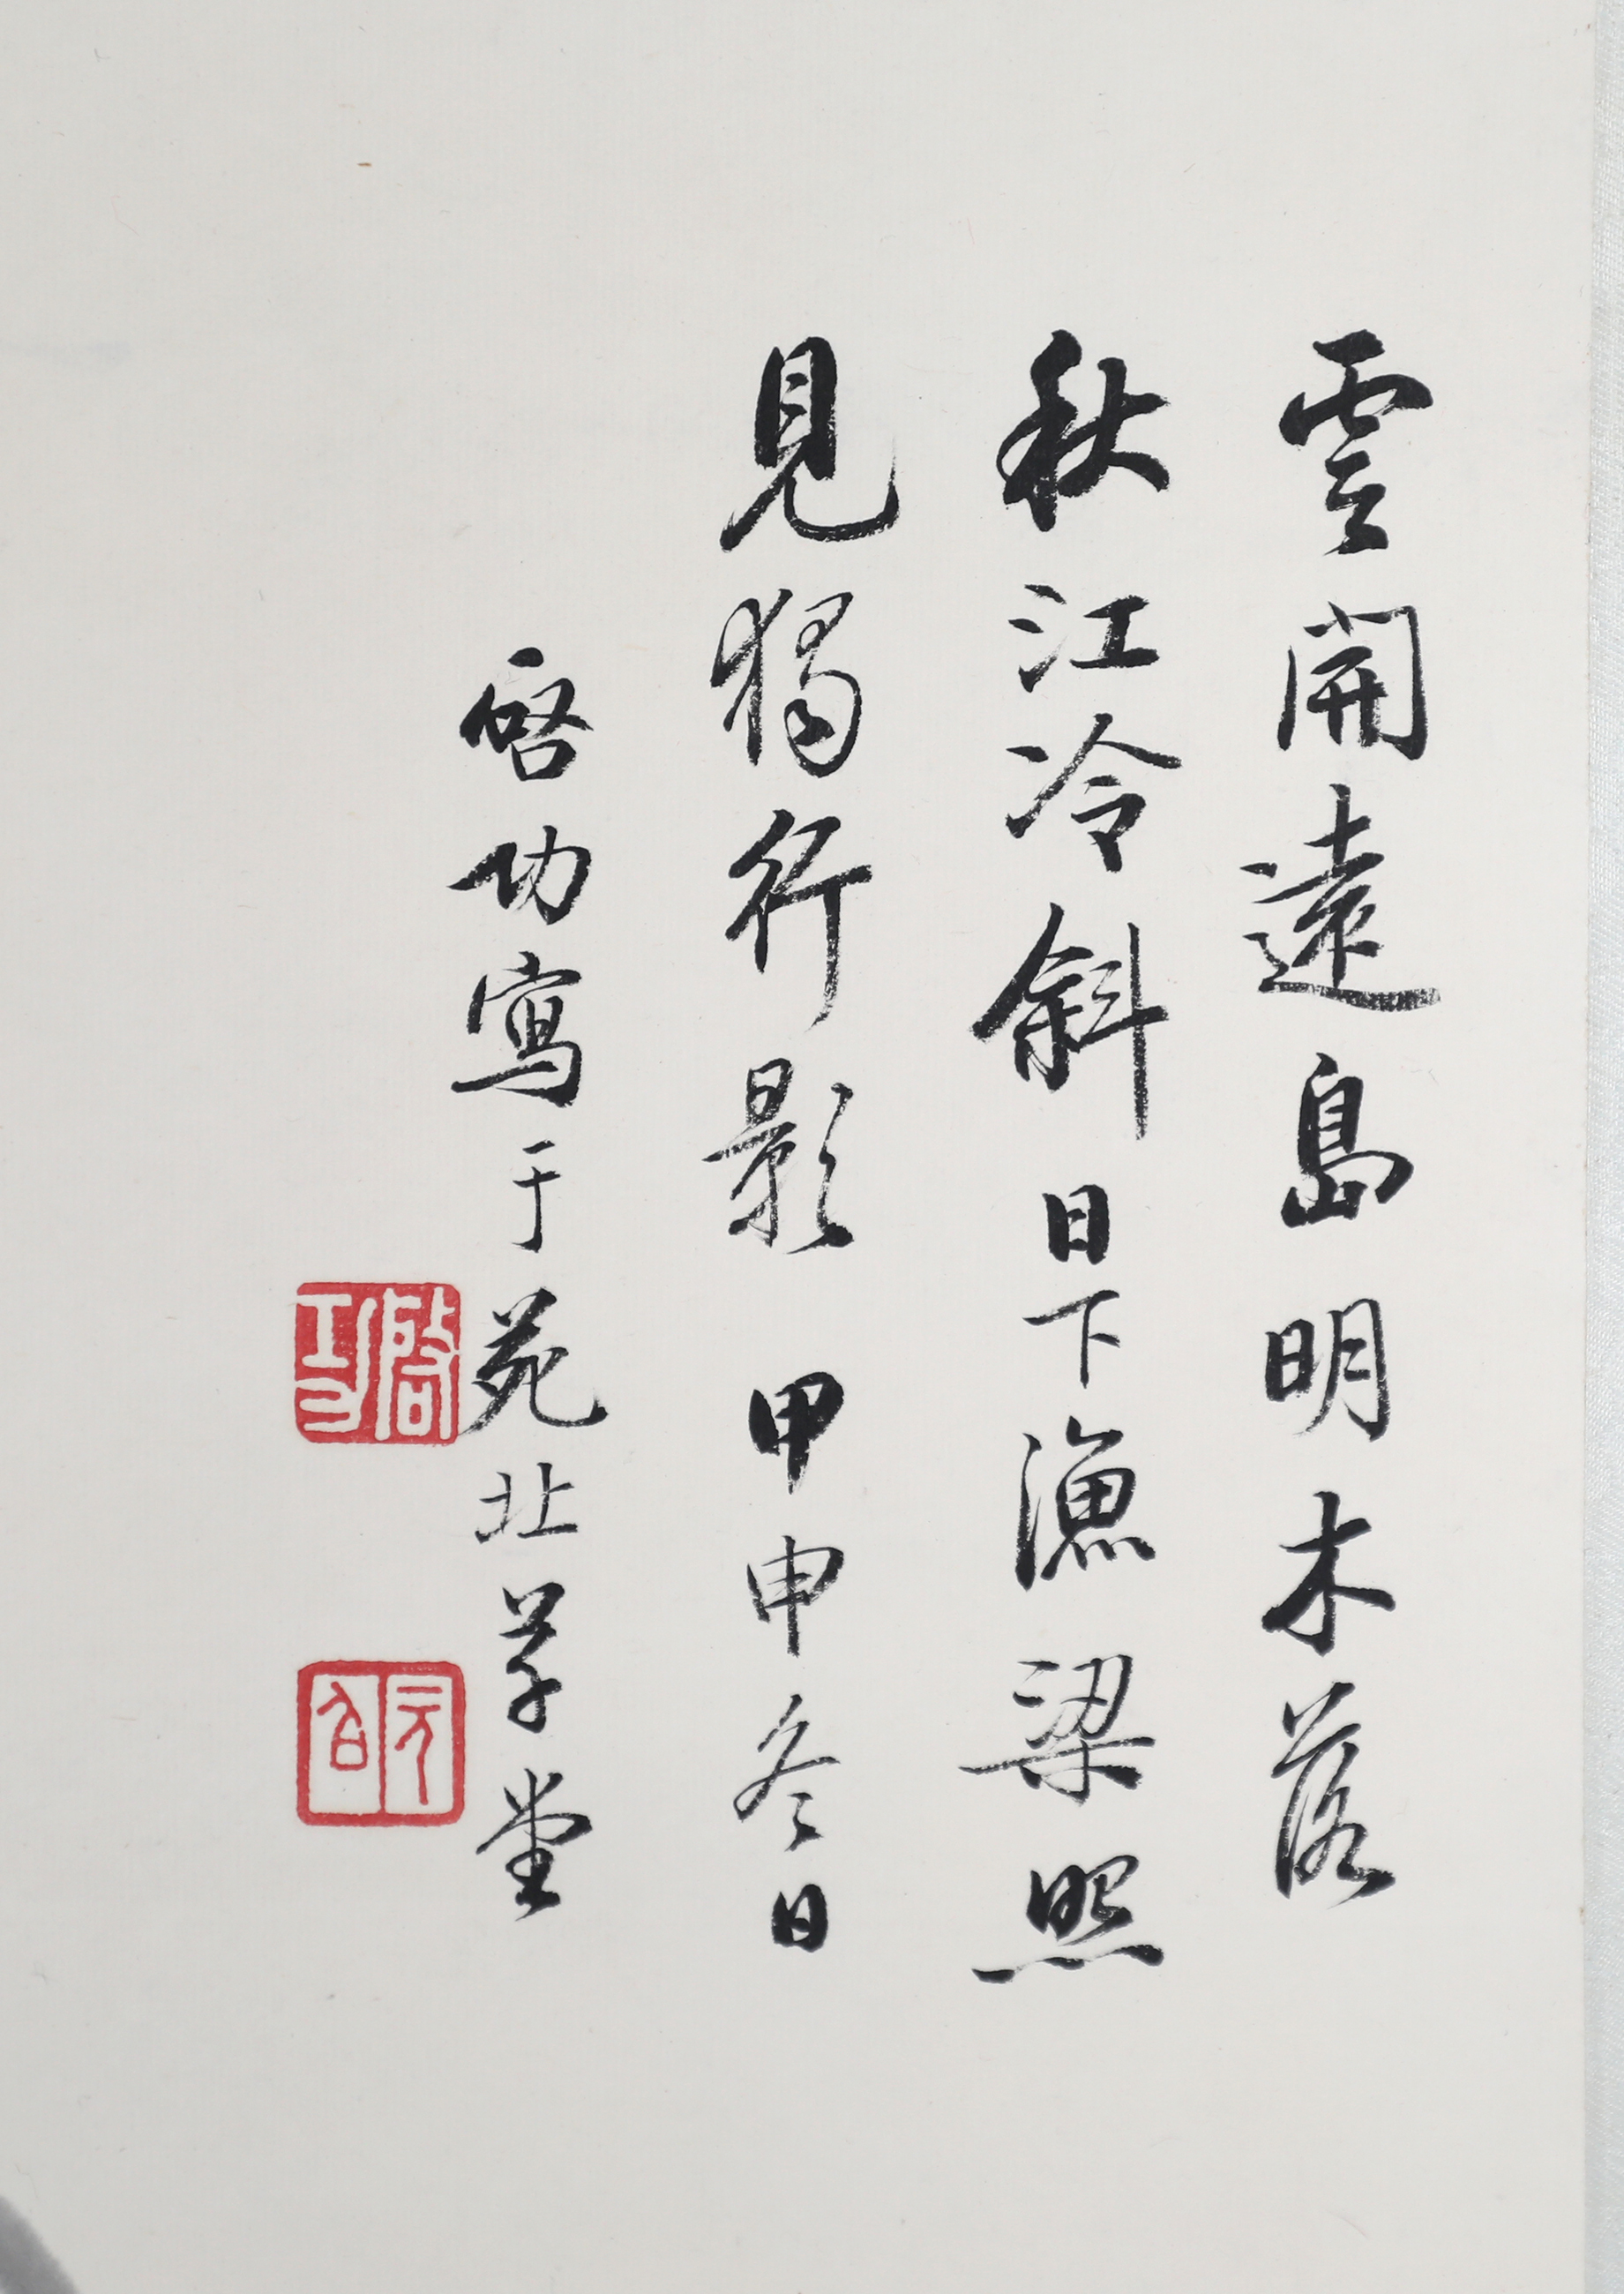 雲開遠島明木落
秋江冷斜日下漁梁照
見獨行影 甲申冬日
啓功寫于苑北草堂
啟功
元白